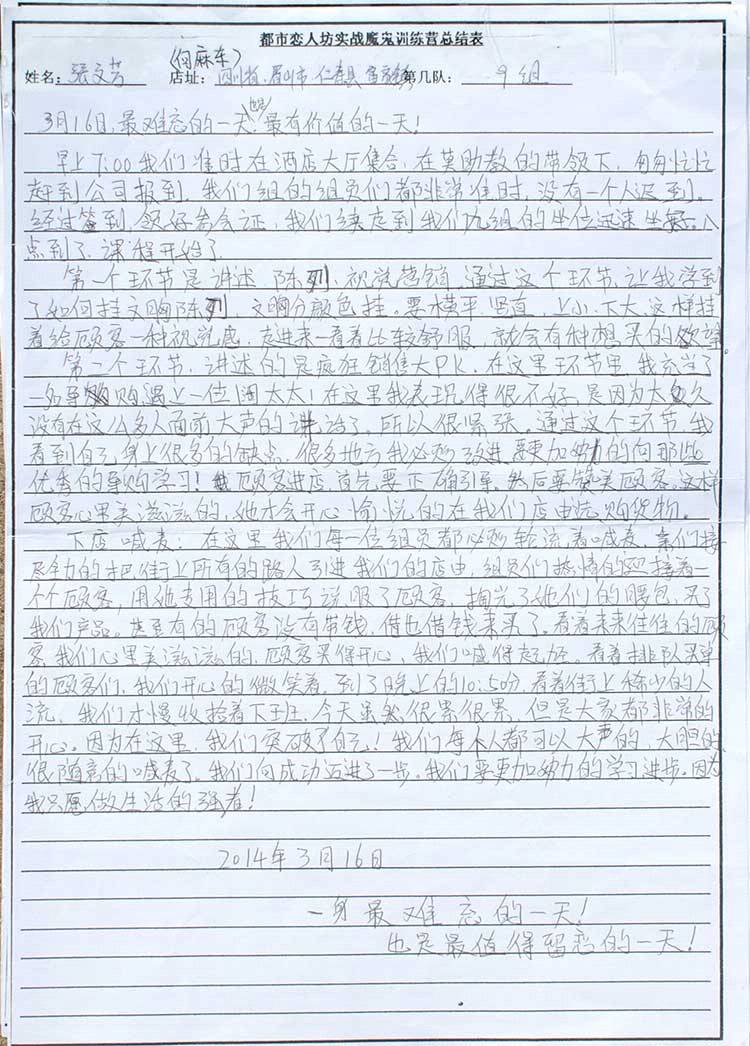 都市恋人坊实战魔鬼训练营总结表
(何麻车)
姓名: 張文芳 店址: 四川省.眉山市 仁寿县 富加镇 第几队: 9组
3月16日,最难忘的一天,也是最有价值的一天!
早上7:00我们准时在酒店大厅集合,在莫助教的带领下,匆匆忙忙
赶到公司报到,我们组的组员们都非常准时,没有一个人迟到。
经过签到,领好参会证,我们续走到我们九组的坐位迅速坐好。八
点到了,课程开始了
第一个环节是讲述 陈列,视觉营销,通过这个环节,让我学到
了如何挂文胸陈列,文胸分颜色挂。要横平,竖直,上小,下大,这样挂
着给顾客一种视觉感,走进来一看着比较舒服,就会有种想买的欲望。
第二个环节,讲述的是疯狂销售大PK,在这里环节里,我充当了
一名导购,遇上一位阔太太!在这里我表现得很不好,是因为太久
没有在这么多人面前大声的讲话了。所以很紧张。通过这个环节,我
看到自己身上很多的缺点,很多地方我必须改进,要更加努力的向那些
优秀的导购学习!顾客进店,首先要正确引导,然后要赞美顾客,这样
顾客心里美滋滋的,她才会开心愉悦的在我们店中选购货物。
下店喊麦:在这里我们每一位组员都必须轮流着喊麦,亲们接
尽全力的把街上所有的路人引进我们的店中,组员们热情的迎接着一
个个顾客,用她专用的技巧说服了顾客,掏光了她们的腰包,买了
我们产品。甚至有的顾客没有带钱,借也借钱来买了。看着来来住住的顾
客,我们心里美滋滋的,顾客买得开心,我们喊得起劲。看着排队买单
的顾客们,我们开心的微笑着,到了晚上的10:50分看着街上稀少的人
流,我们才慢收拾着下班,今天虽然很累很累,但是大家都非常的
开心。因为在这里,我们突破了自己!我们每个人都可以大声的,大胆的
很随意的喊麦了。我们向成功迈进了一步。我们要更加努力的学习进步。因为
我只愿做生活的强者!
2014年3月16日
一身最难忘的一天!
也是最值得留恋的一天!